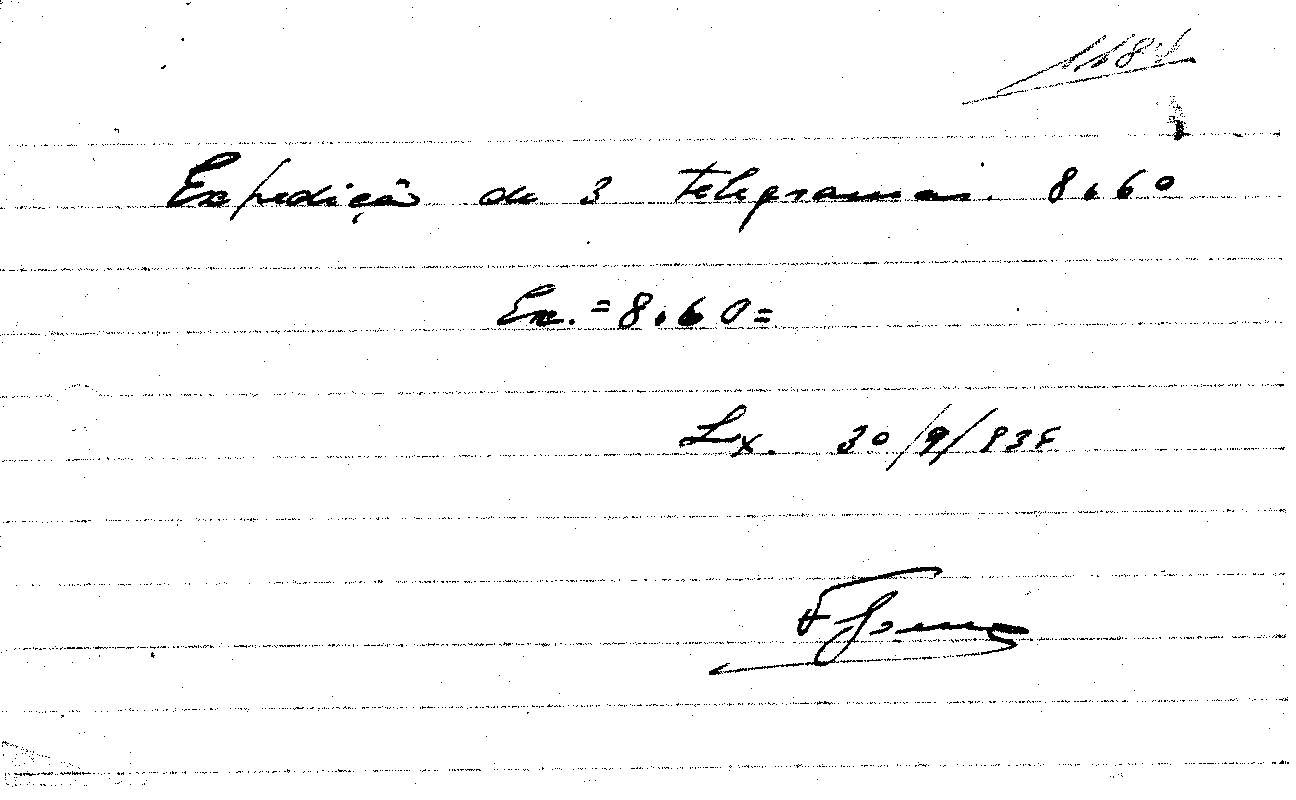 Expedição de 3 telegramas. 8,60
Ex. = 8,60=
Lx. 30/9/935